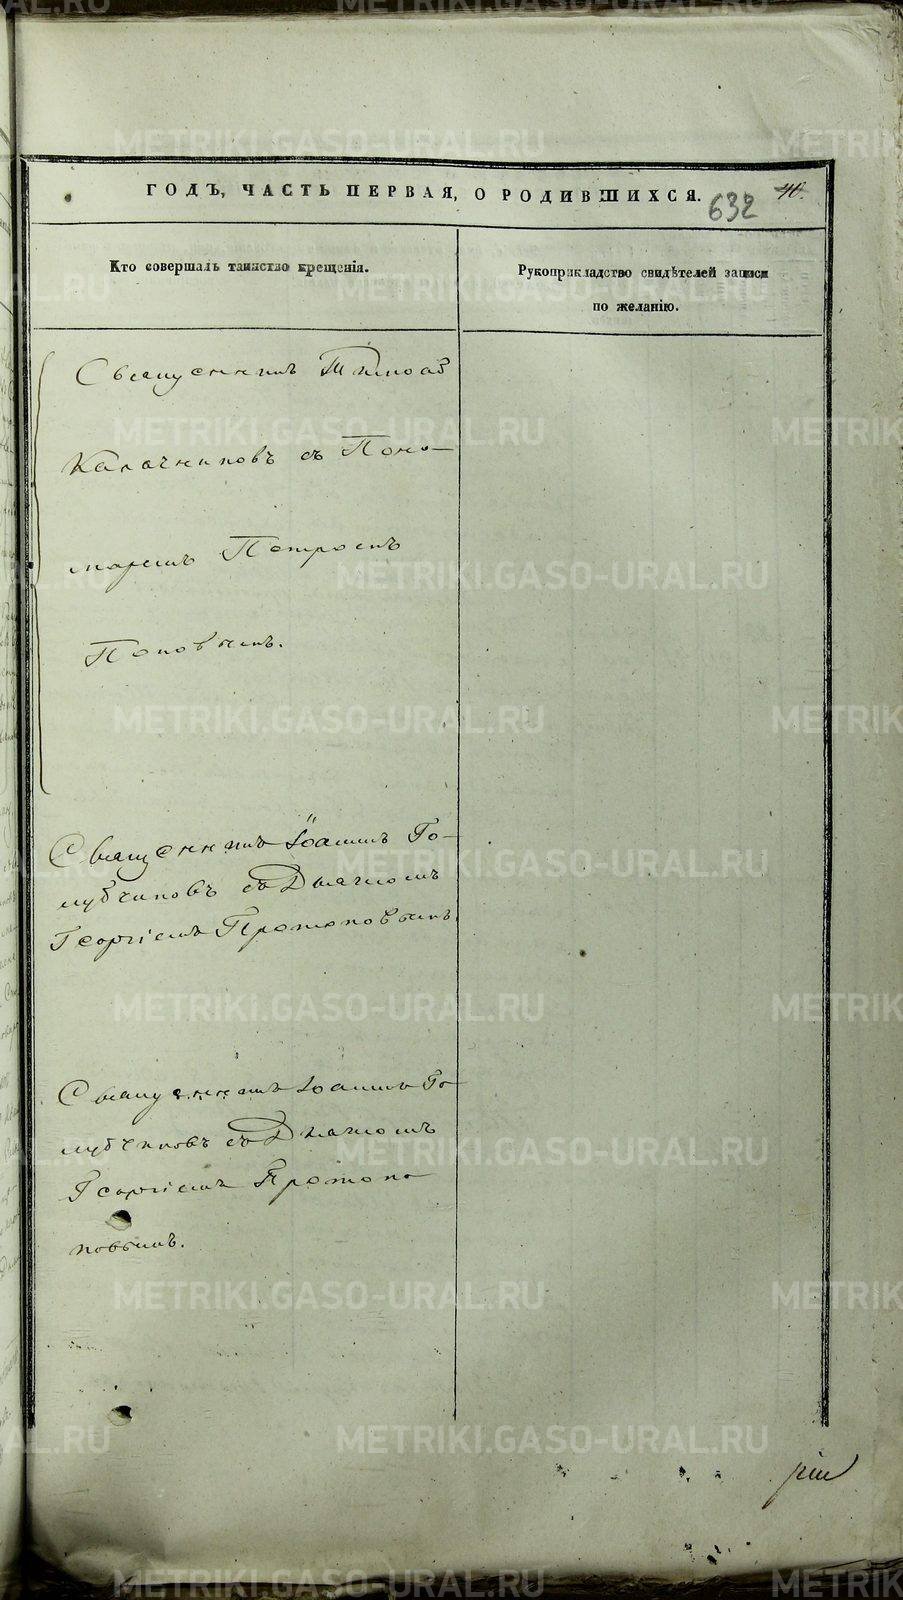 ГОДЪ, ЧАСТЬ ПЕРВАЯ, О РОДИВШИХСЯ.
632
Кто совершалъ таинство крещенія.
Рукоприкладство свидѣтелей записи
по желанію.
Священникъ
Калачниковъ съ Поно-
маремъ Петромъ
Поповымъ.
Священникъ Іоаннъ Го-
лубчиковъ съ Дьячкомъ
Георгіемъ Протопоповымъ
Священникъ Іоаннъ Го-
лубчиковъ съ Дьячкомъ
Георгіемъ Протопо
повымъ.
METRIKI.GASO-URAL.RU